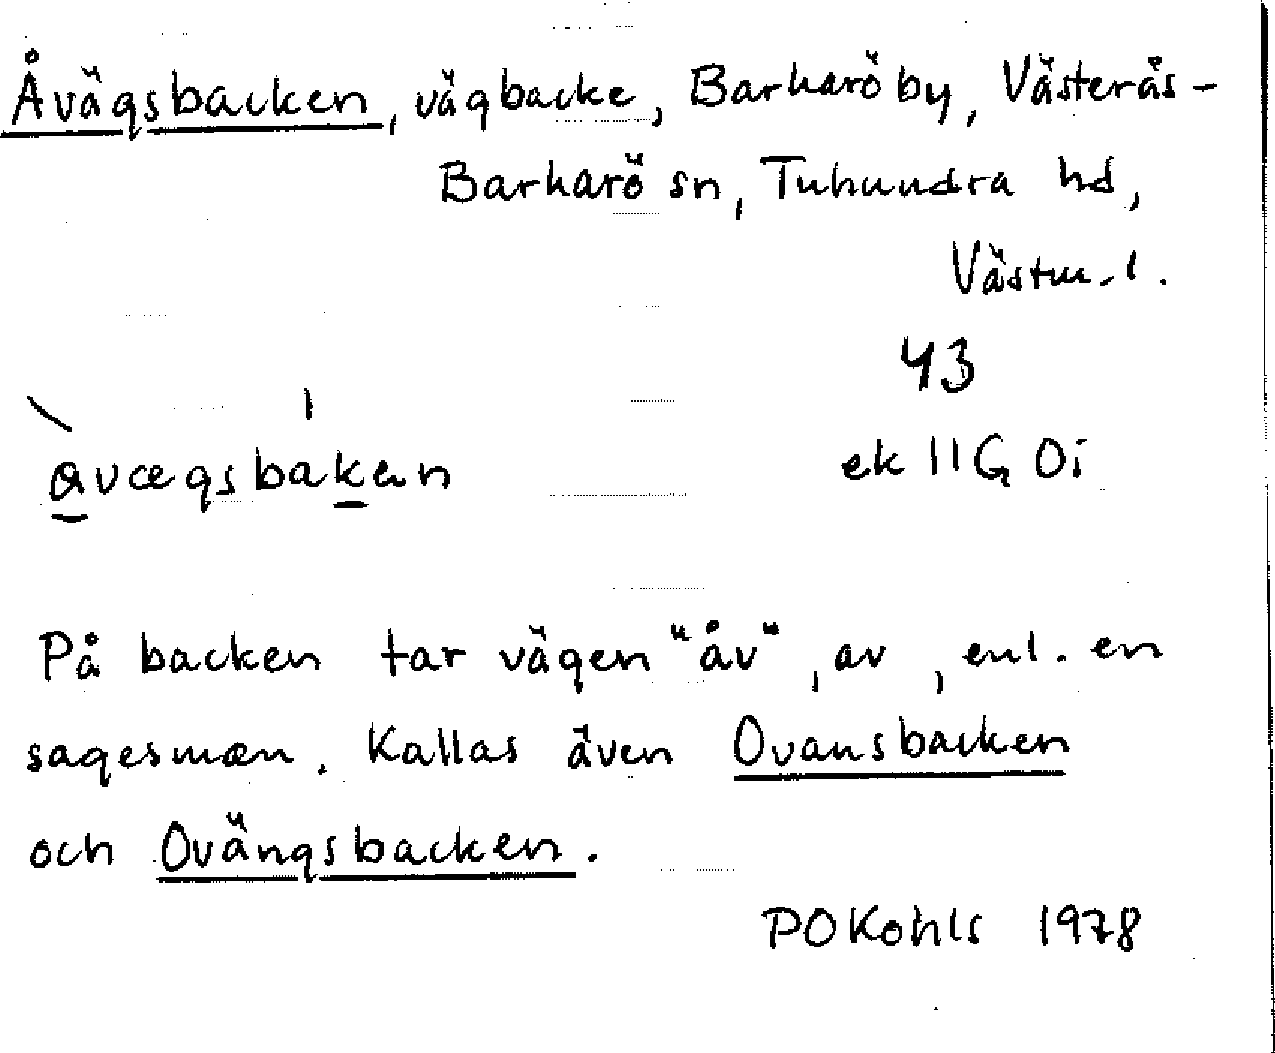 Åvägsbacken, vägbacke, Barkarö by, Västerås-
Barkarö sn, Tuhundra hd,
Västm. l.
43
ek 11G 0i
På backen tar vägen "åv", av, enl. en
sagesman. Kallas även Ovansbacken
och Ovängsbacken.
POKohls 1978